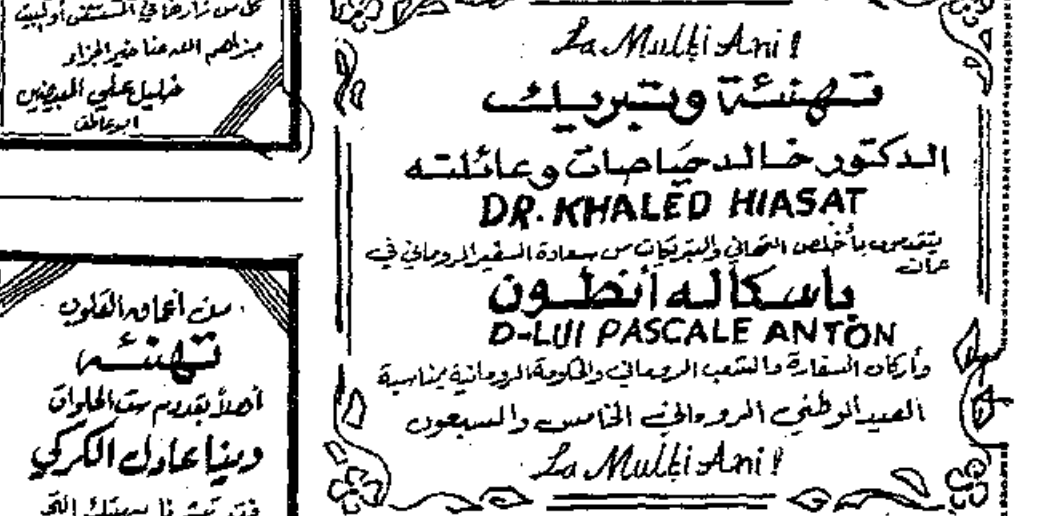 كل من زارها في المستشفى أو البيت
جزاهم الله عنا خير الجزاء
خليل علي المبيضين
ابو عاطف
من أعماق القلوب
تهنئة
أهلاً بقدوم ست الحلوات
دينا عادل الكركي
La Multi Ani!
تهنئة وتبريك
الدكتور خالد حياصات وعائلته
DR. KHALED HIASAT
يتقدمون بأخلص التهاني والتبريكات من سعادة السفير الروماني في
عمان
باسكاله أنطون
D-LUI PASCALE ANTON
وأركان السفارة والشعب الروماني والحكومة الرومانية بمناسبة
العيد الوطني الروماني الخامس والسبعون
La Multi Ani!